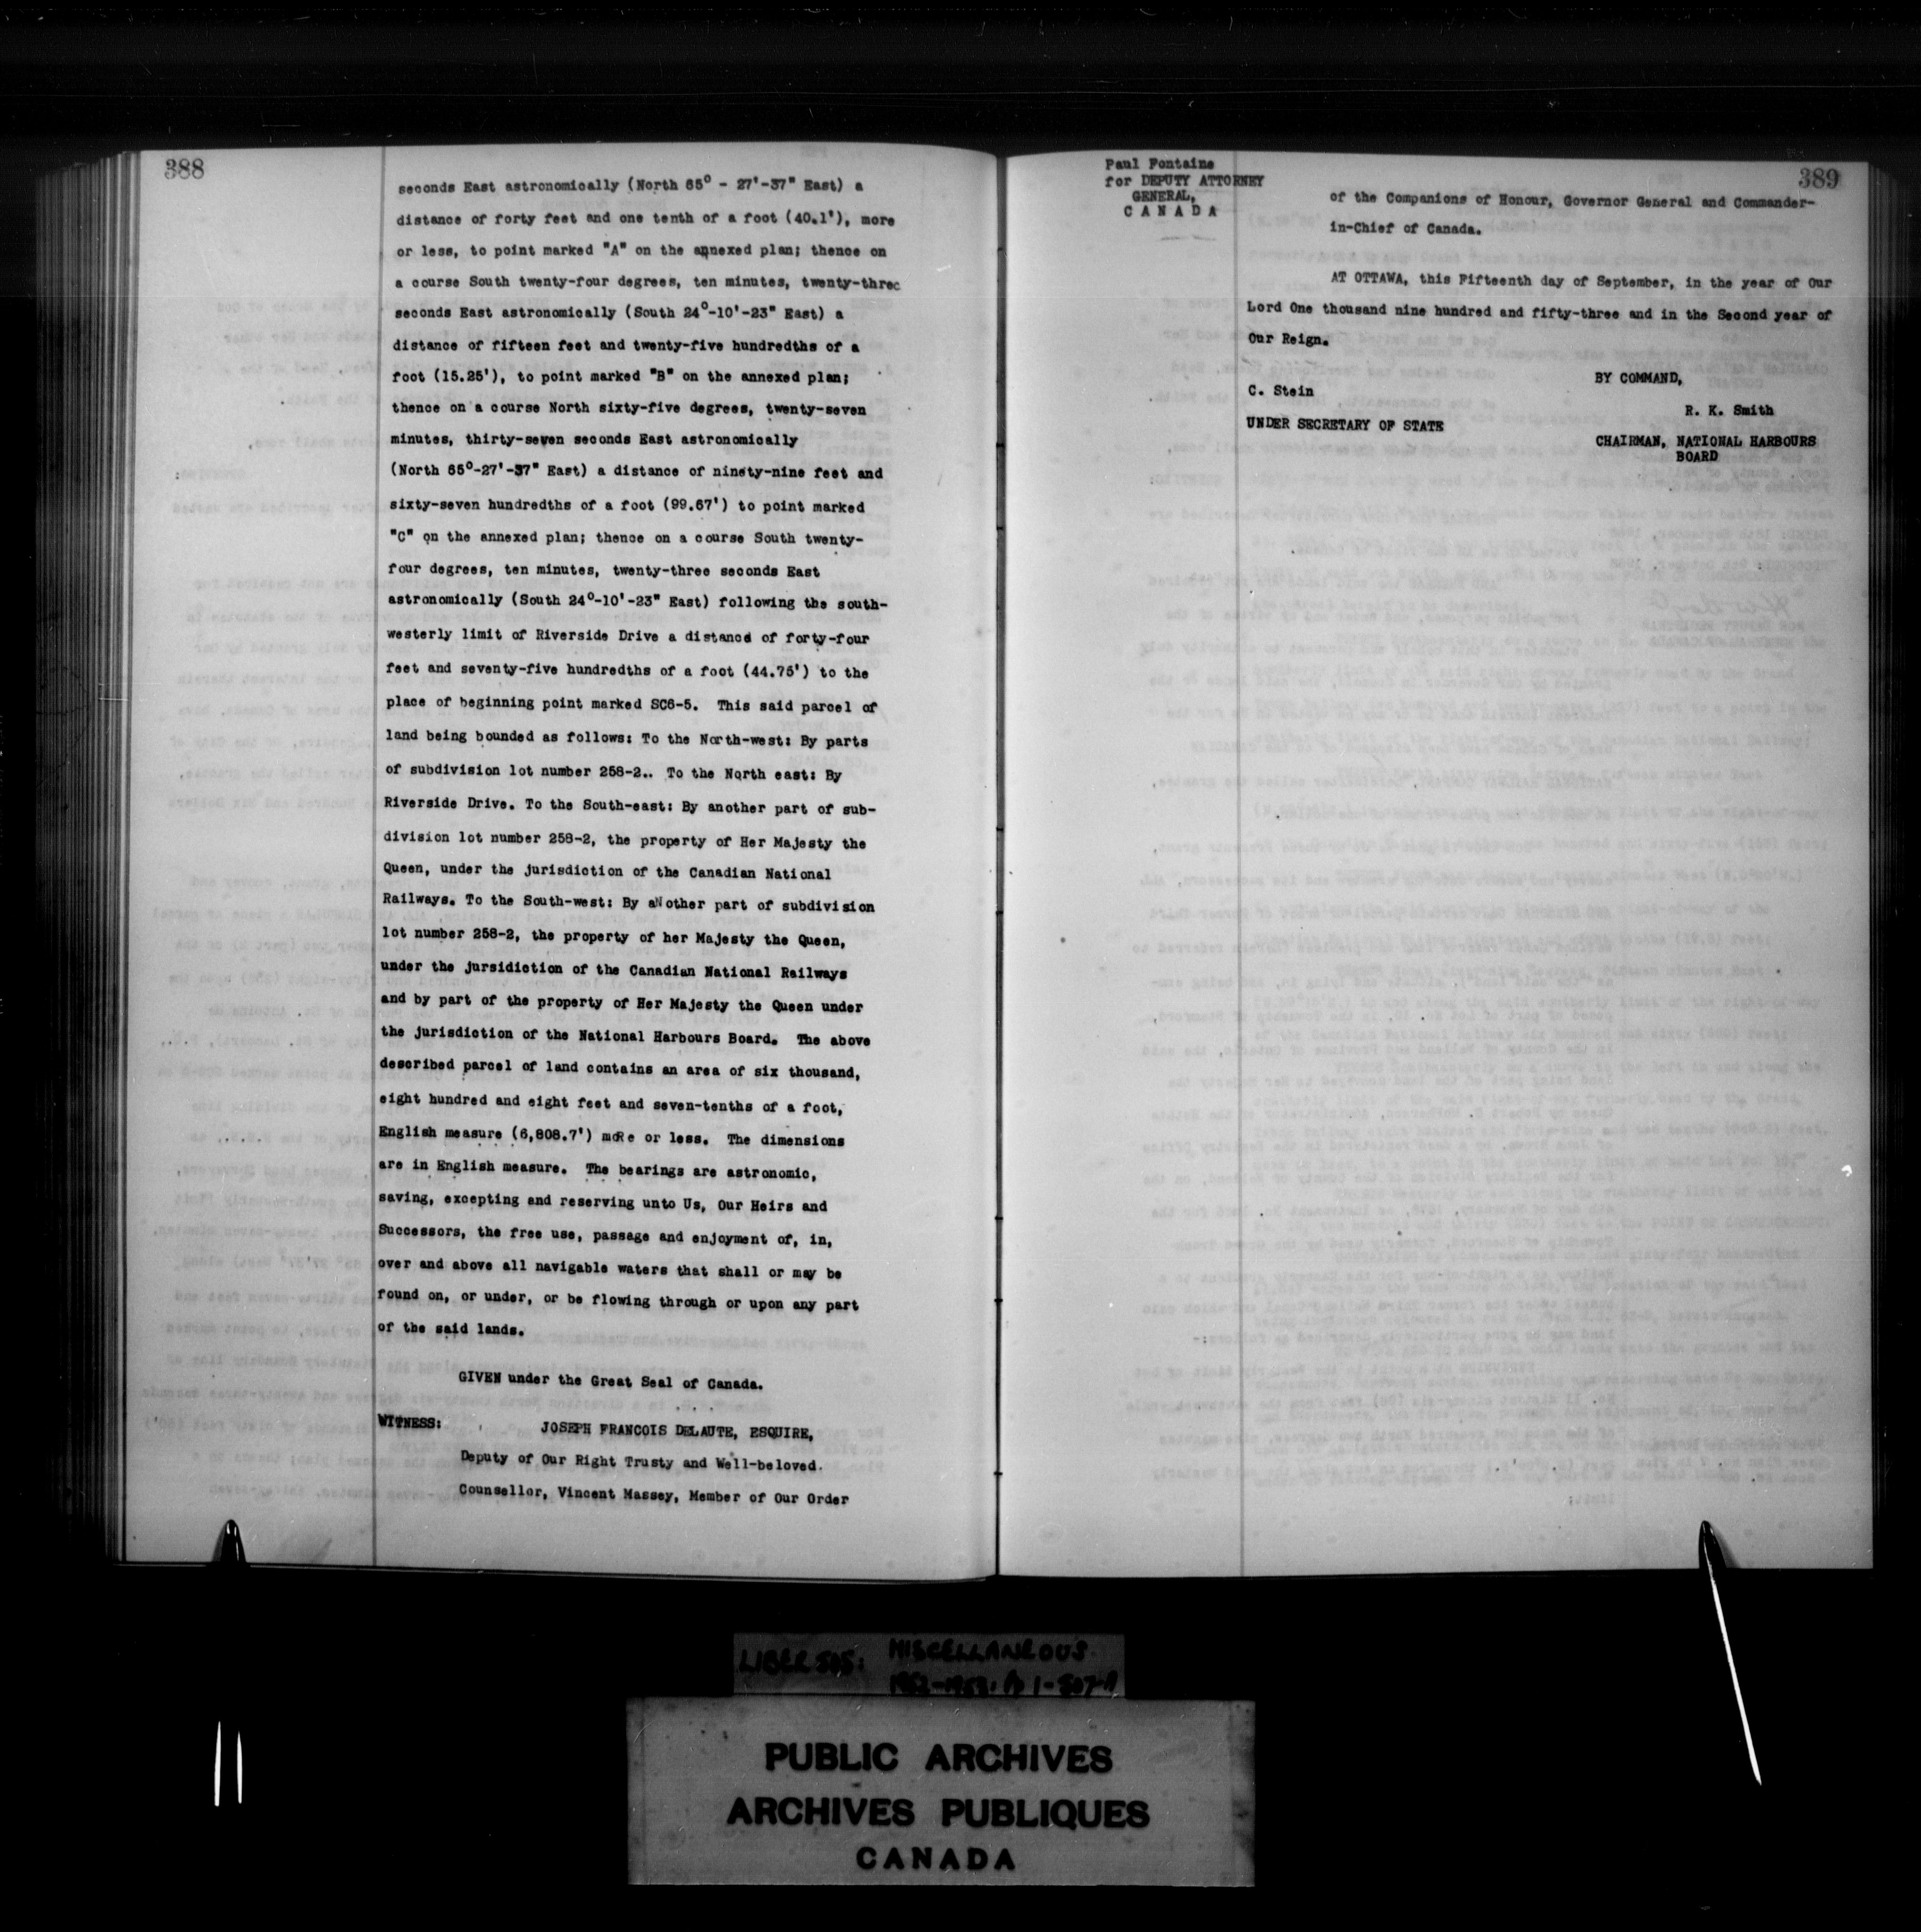 388
seconds East astronomically (North 65° - 27'-37" East) a
distance of forty feet and one tenth of a foot (40.1'), more
or less, to point marked "A" on the annexed plan; thence on
a course South twenty-four degrees, ten minutes, twenty-three
seconds East astronomically (South 24°-10'-23" East) a
distance of fifteen feet and twenty-five hundredths of a
foot (15.25'), to point marked "B" on the annexed plan;
thence on a course North sixty-five degrees, twenty-seven
minutes, thirty-seven seconds East astronomically
(North 65°-27'-37" East) a distance of ninety-nine feet and
sixty-seven hundredths of a foot (99.67') to point marked
"C" on the annexed plan; thence on a course South twenty-
four degrees, ten minutes, twenty-three seconds East
astronomically (South 24°-10'-23" East) following the south-
westerly limit of Riverside Drive a distance of forty-four
feet and seventy-five hundredths of a foot (44.75') to the
place of beginning point marked SC6-5. This said parcel of
land being bounded as follows: To the North-west: By parts
of subdivision lot number 258-2.. To the North east: By
Riverside Drive. To the South-east: By another part of sub-
division lot number 258-2, the property of Her Majesty the
Queen, under the jurisdiction of the Canadian National
Railways. To the South-west: By aNother part of subdivision
lot number 258-2, the property of her Majesty the Queen,
under the jursidiction of the Canadian National Railways
and by part of the property of Her Majesty the Queen under
the jurisdiction of the National Harbours Board. The above
described parcel of land contains an area of six thousand,
eight hundred and eight feet and seven-tenths of a foot,
English measure (6,808.7') moRe or less. The dimensions
are in English measure. The bearings are astronomic,
saving, excepting and reserving unto Us, Our Heirs and
Successors, the free use, passage and enjoyment of, in,
over and above all navigable waters that shall or may be
found on, or under, or be flowing through or upon any part
of the said lands.
GIVEN under the Great Seal of Canada.
WITNESS: JOSEPH FRANCOIS DELAUTE, ESQUIRE,
Deputy of Our Right Trusty and Well-beloved.
Counsellor, Vincent Massey, Member of Our Order
Paul Fontaine
for DEPUTY ATTORNEY
GENERAL,
CANADA
389
of the Companions of Honour, Governor General and Commander-
in-Chief of Canada.
AT OTTAWA, this Fifteenth day of September, in the year of Our
Lord One thousand nine hundred and fifty-three and in the Second year of
Our Reign.
BY COMMAND,
C. Stein
R. K. Smith
UNDER SECRETARY OF STATE
CHAIRMAN, NATIONAL HARBOURS
BOARD
LIBER 505: MISCELLANEOUS
1952-1953:
PUBLIC ARCHIVES
ARCHIVES PUBLIQUES
CANADA